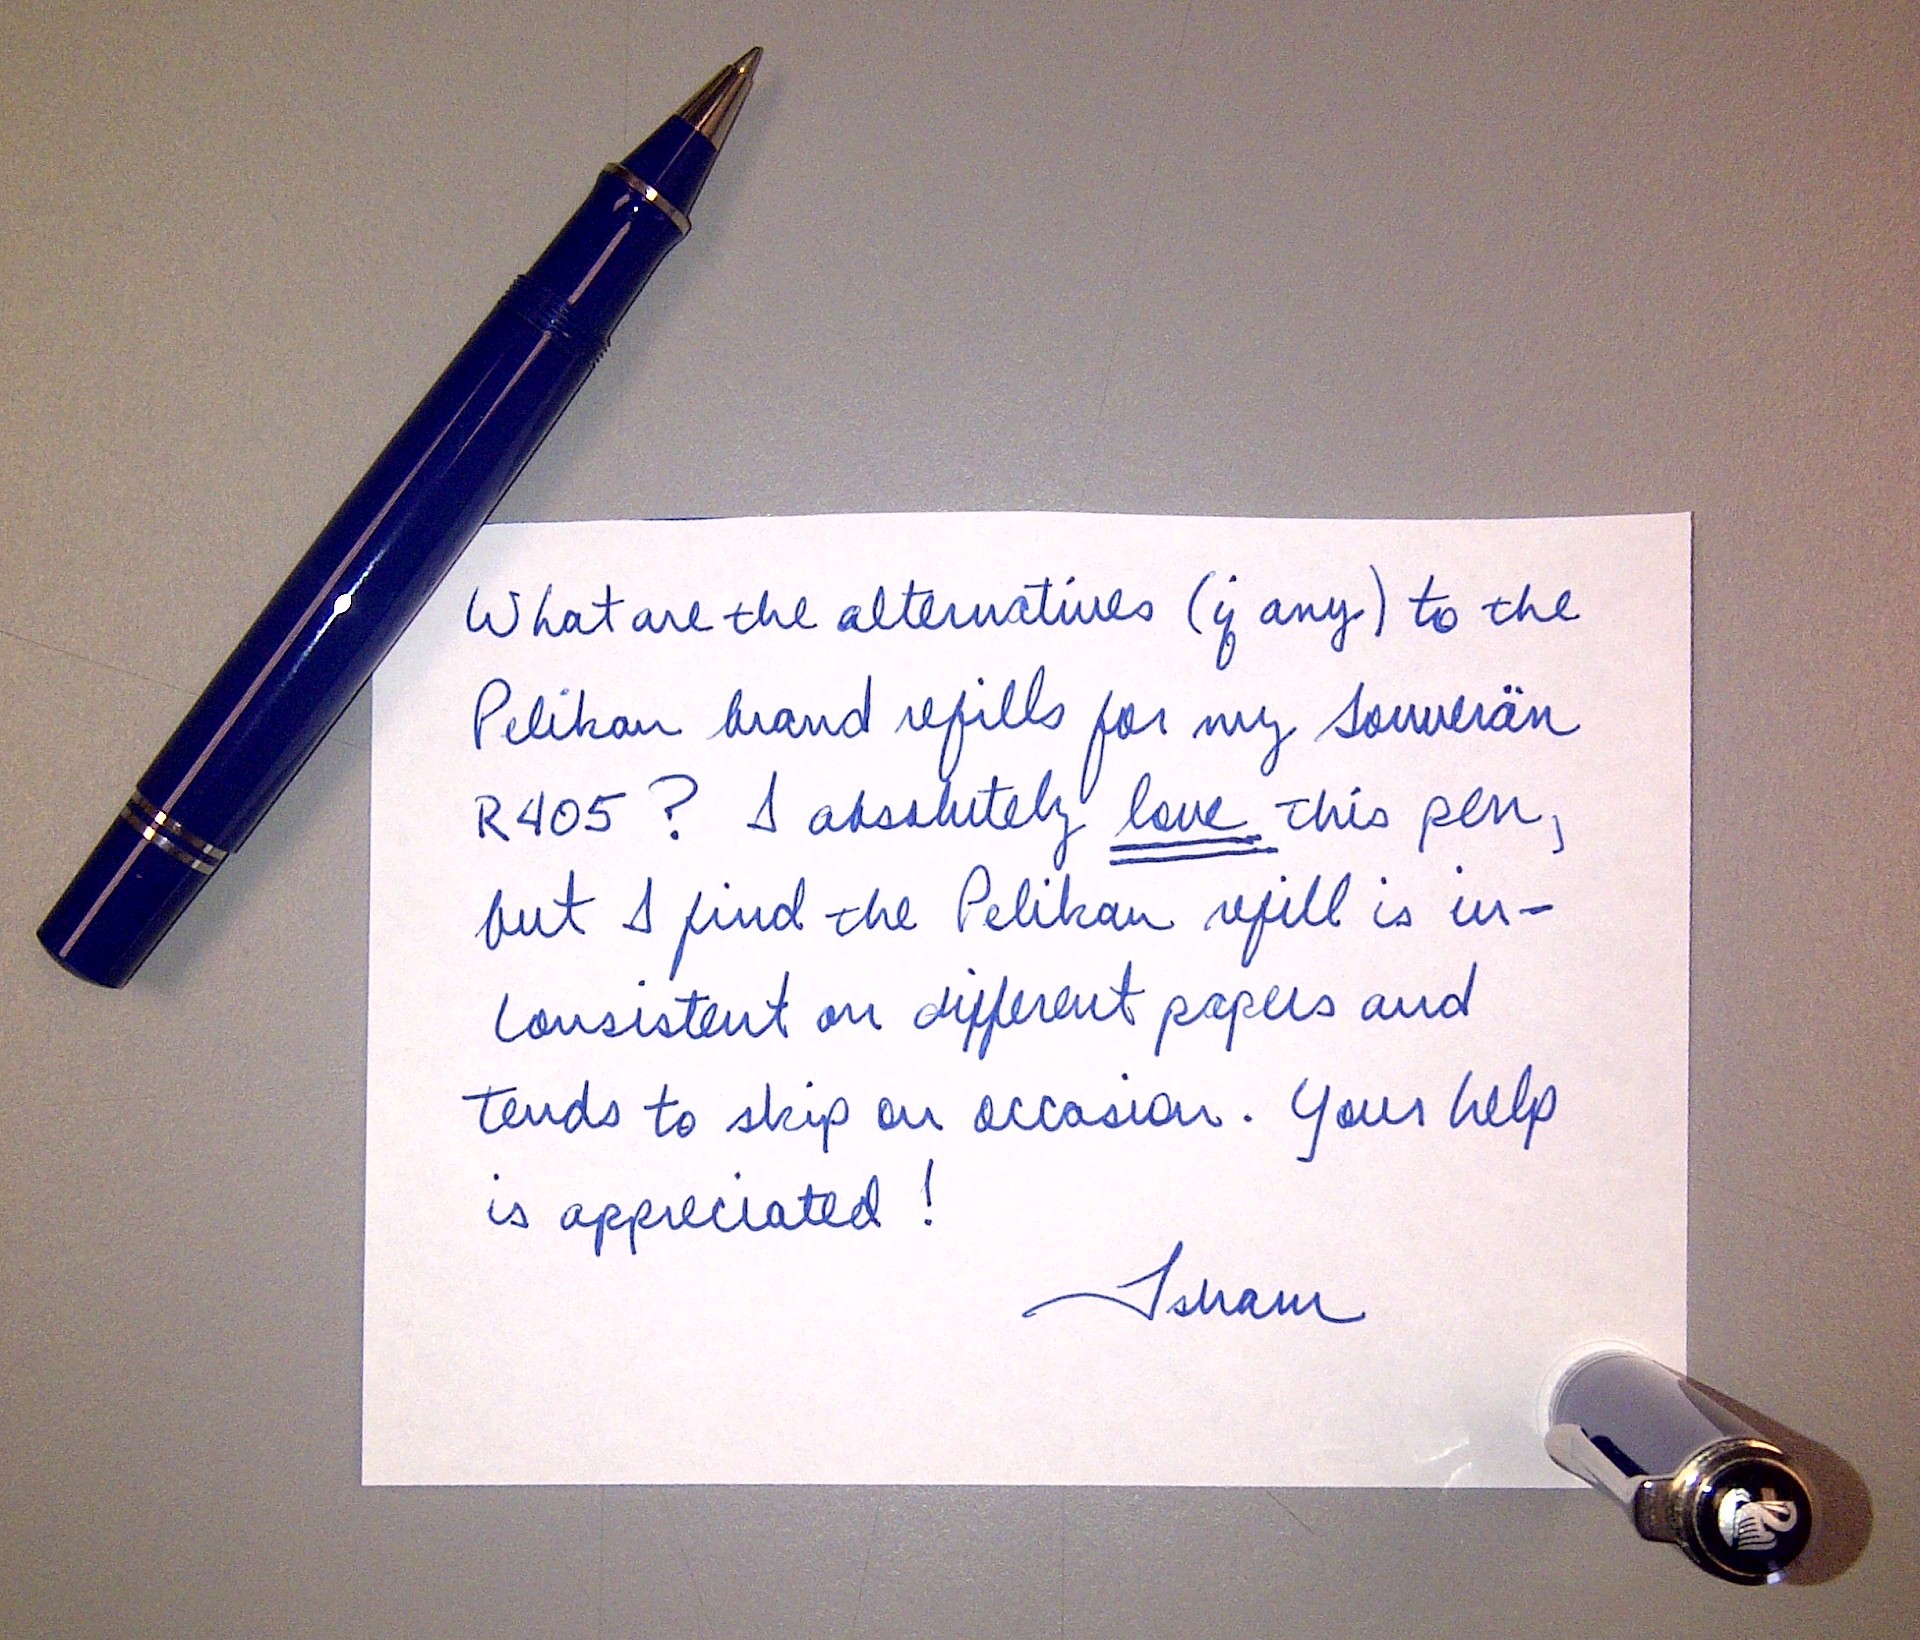 What are the alternatives (if any) to the
Pelikan brand refills for my Souverän
R405? I absolutely love this pen,
but I find the Pelikan refill is in-
consistent on different papers and
tends to skip on occasion. Your help
is appreciated!